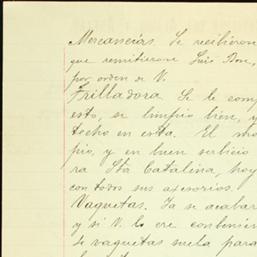 Mercancías. Se recibieron
que remitieron Luis Bon,
por orden de V.
Trilladora Se le com
esto, se limpio bien, y
techo en esta. El mo
pio, y en buen serbicio
ra Sta Catalina, hoy
con todos sus axesorios.
Vaquetas. Ya se acabar
y si V. lo cre conbenien
de vaquetas suela para